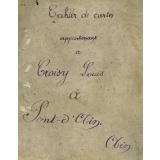 Cahier de cartes
appartenant
à
Croizy Louis
à
Pont-d'Ain
(Ain)